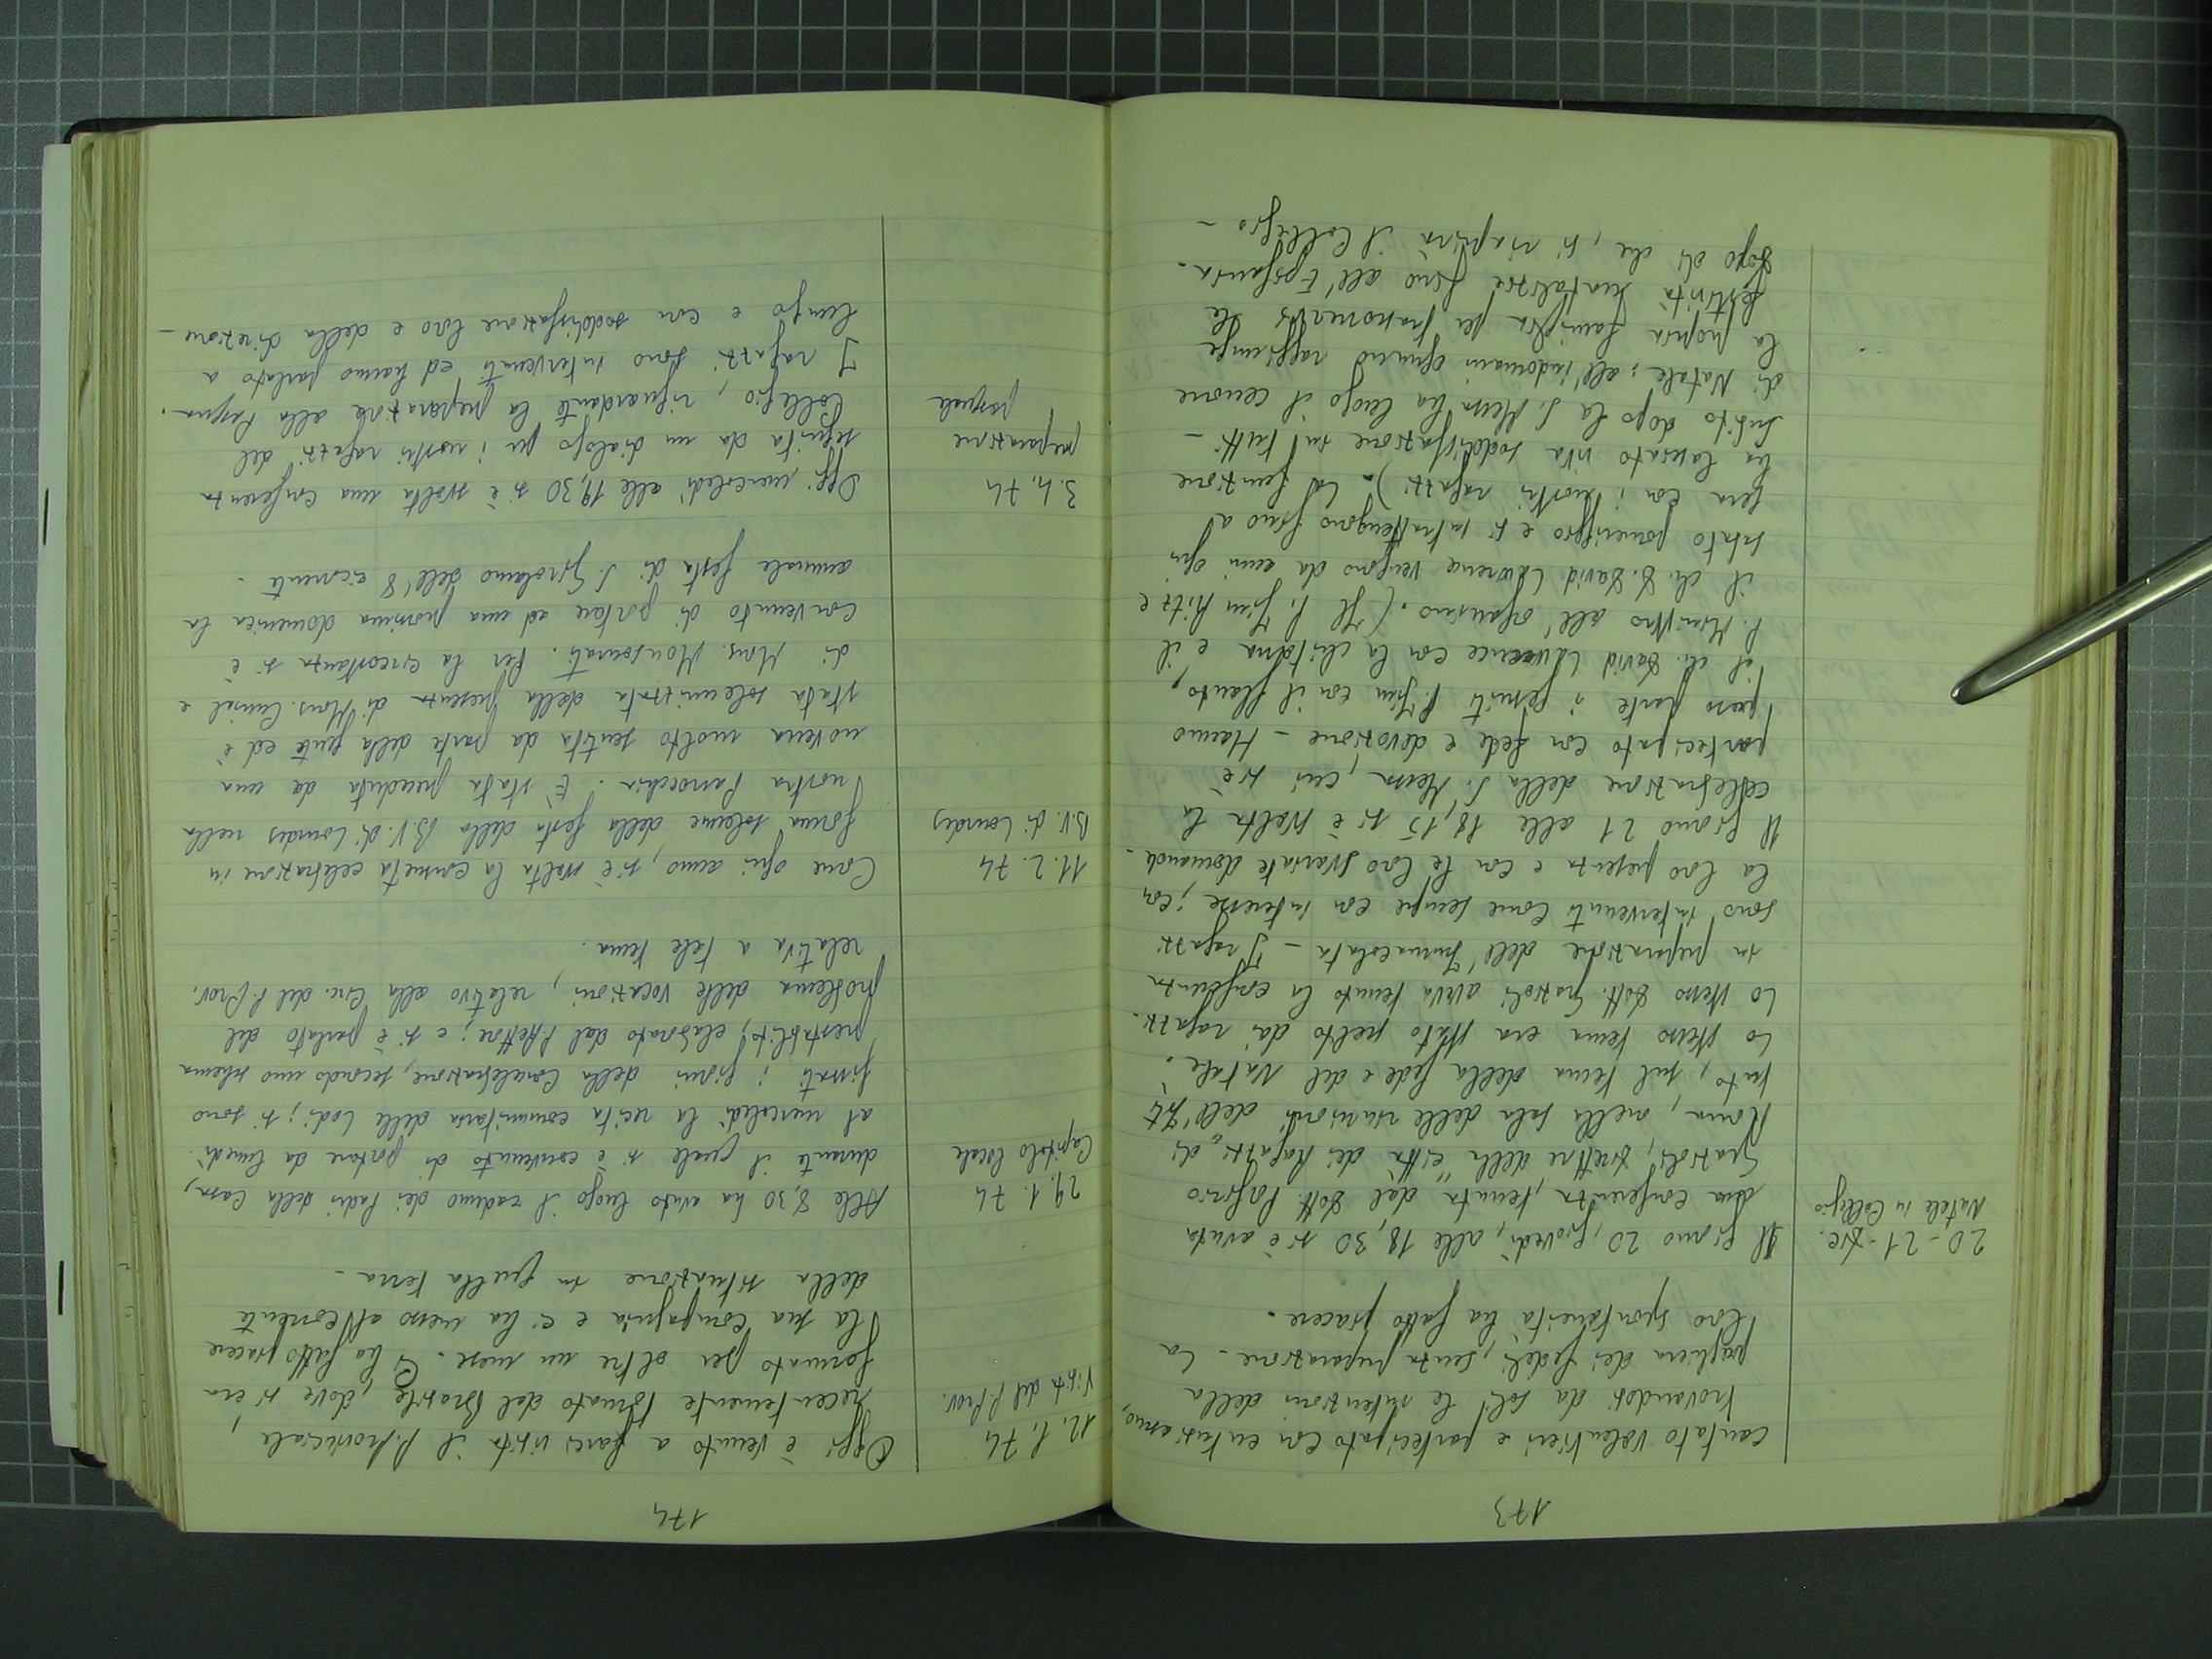 173
cantato volentieri e partecipato con entusiasmo,
trovandosi da soli le intenzioni della
preghiera dei fedeli, senza preparazione. La
loro spontaneità ha fatto piacere.
20-21-Dic.
Natale in Collegio
Il giorno 20, giovedì, alle 18,30 si è avuta
una conferenza, tenuta dal Dott. Paforio
Grazioli, Direttore della "città dei Ragazzi" di
Roma, nella sala delle riunioni dell'Isti
tuto, sul tema della fede e del Natale.
Lo stesso tema era stato scelto dai ragazzi.
Lo stesso Dott. Grazioli aveva tenuto la conferenza
in preparazione dell'Immacolata - I ragazzi
sono intervenuti come sempre con interesse, con
la loro presenza e con le loro svariate domande.
Il giorno 21 alle 18,15 si è svolta la
celebrazione della S. Messa, cui si è
partecipato con fede e devozione - Hanno
preso parte i gesuiti P. Jim con il flauto,
il ch. David Lawrence con la chitarra e il
P. Ministro all'organino. (Il P. Jim Fitz e
il ch. D. David Lawrence vengono da anni ogni
sabato pomeriggio e si intrattengono fino a
sera con i nostri ragazzi). La funzione
ha lasciato viva soddisfazione in tutti -
Subito dopo la S. Messa ha luogo il cenone
di Natale; all'indomani ognuno raggiunge
la propria famiglia per trascorrervi le
festività natalizie fino all'Epifania.
Dopo di che, si riaprirà il Collegio -
174
12.1.74
Visita del P. Prov.
Oggi è venuto a farci visita il P. Provinciale,
recentemente tornato dal Brasile, dove si era
fermato per oltre un mese. Ci ha fatto piacere
la sua compagnia e ci ha messo al corrente
della situazione in quella terra -
29.1.74
Capitolo locale
Alle 8,30 ha avuto luogo il raduno dei Padri della Casa,
durante il quale si è convenuto di portare da lunedì
al mercoledì la recita comunitaria delle Lodi; si sono
fissati i giorni della Concelebrazione, secondo uno schema
prestabilito, elaborato dal P. Rettore; e si è parlato del
problema delle vocazioni, relativo alla Circ. del P. Prov.
relativa a tale tema.
11.2.74
B.V. di Lourdes
Come ogni anno, si è svolta la consueta celebrazione in
forma solenne della festa della B.V. di Lourdes nella
nostra Parrocchia. È stata preceduta da una
novena molto sentita da parte della gente ed è
stata solennizzata dalla presenza di Mons. Cunial e
di Mons. Monsonati. Per la circostanza si è
convenuto di portare ad una prossima domenica la
annuale festa di S. Girolamo dell'8 corrente -
3.4.74
preparazione
pasquale
Oggi, mercoledì alle 19,30 si è svolta una conferenza
seguita da un dialogo per i nostri ragazzi del
Collegio, riguardante la preparazione alla Pasqua.
I ragazzi sono intervenuti ed hanno parlato a
lungo e con soddisfazione loro e della direzione -